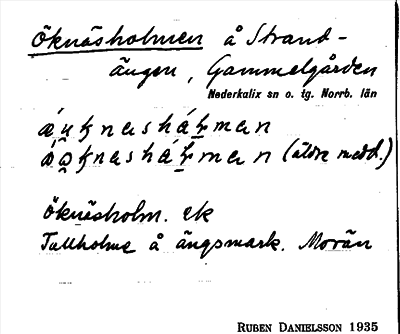 Öknäsholmen å Strand-
ängen, Gammelgården
Nederkalix sn o. tg. Norrb. län
(äldre medd.)
Öknäsholm. ek
Tallholme å ängsmark. Morän
RUBEN DANIELSSON 1935